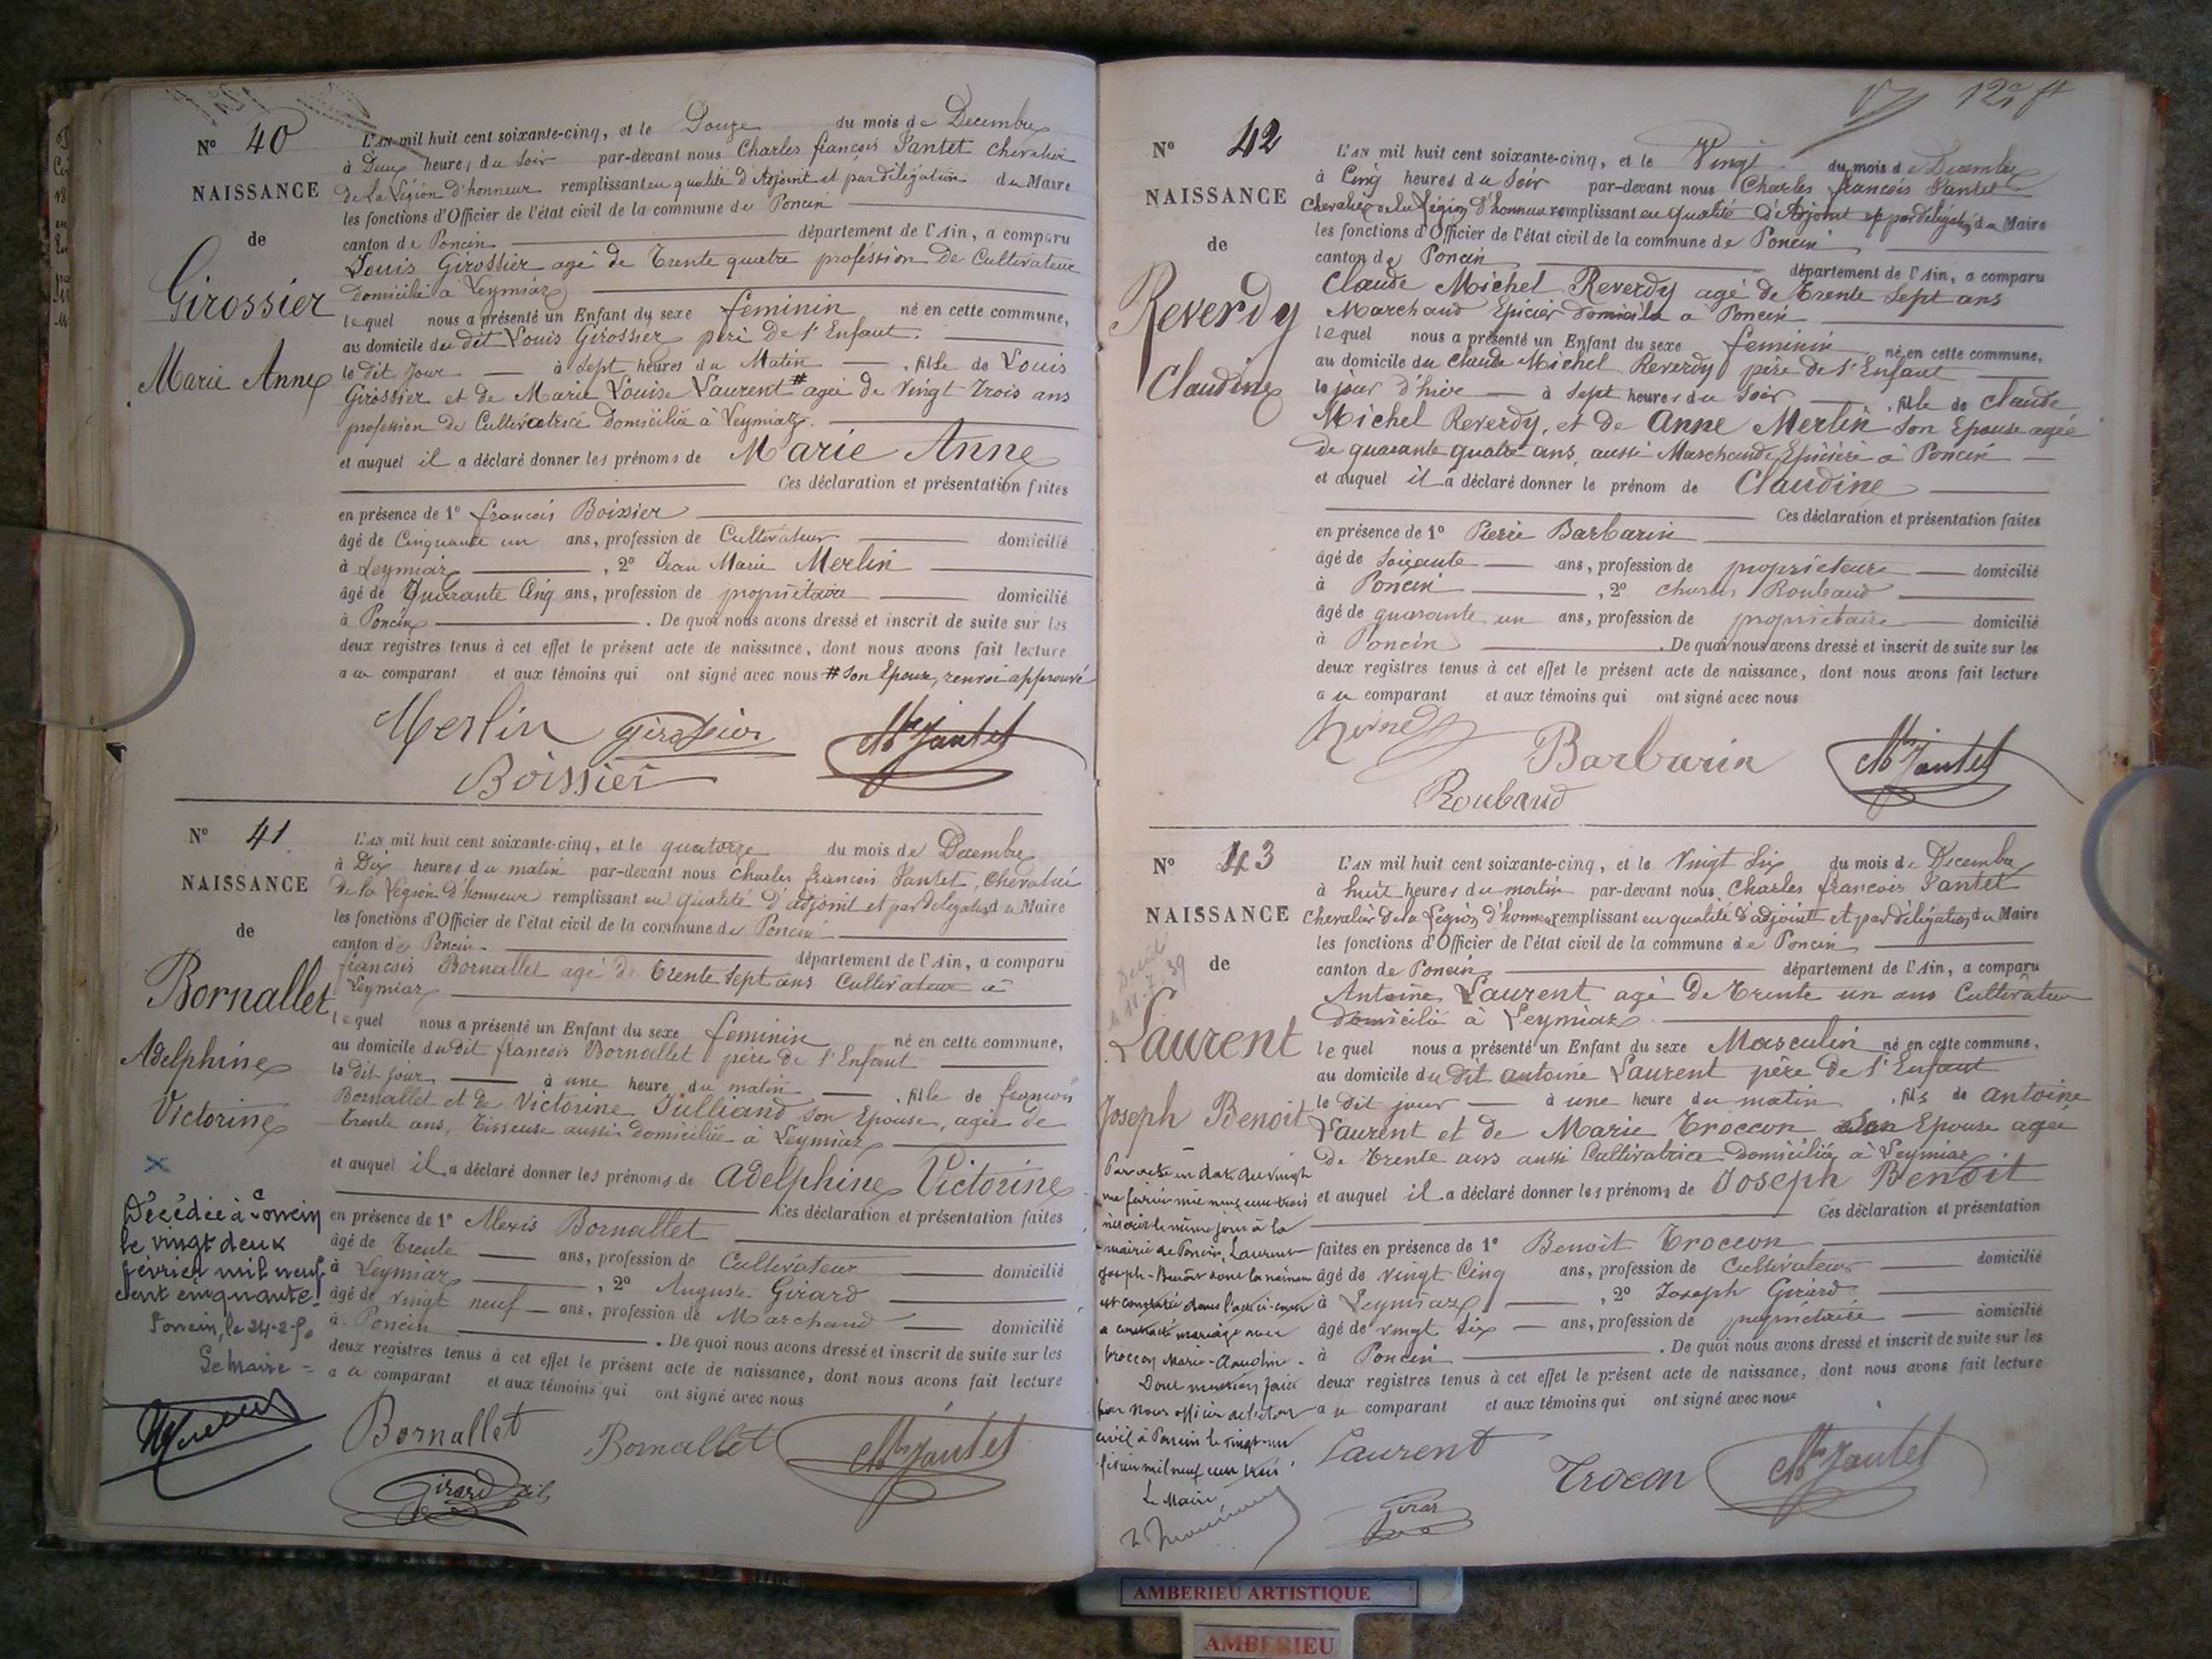 N° 40
NAISSANCE
de
Girossier
Marie Anne
L'AN mil huit cent soixante-cinq, et le Douze du mois de Decembre
à Deux heures du Soir par-devant nous Charles françois Jantet Chevalier
de La Légion d'honneur remplissant en qualité d'Adjoint et par délégation du Maire
les fonctions d'Officier de l'état civil de la commune de Poncin
canton de Poncin département de l'Ain, a comparu
Louis Girossier agé de Trente quatre profession De Cultivateur
Domicilié à Leymiaz
lequel nous a présenté un Enfant du sexe feminin né en cette commune,
au domicile du dit Louis Girossier père De l'Enfant.
le dit Jour à Sept heures du Matin , fille de Louis
Girossier et de Marie Louise Laurent # agée de Vingt Trois ans
profession de Cultivatrice Domiciliée à Leymiaz.
et auquel il a déclaré donner les prénoms de Marie Anne
Ces déclaration et présentation faites
en présence de 1° françois Boissier
âgé de Cinquante un ans, profession de Cultivateur domicilié
à Leymiaz , 2° Jean Marie Merlin
âgé de Quarante Cinq ans, profession de propriétaire domicilié
à Poncin . De quoi nous avons dressé et inscrit de suite sur les
deux registres tenus à cet effet le présent acte de naissance, dont nous avons fait lecture
au comparant et aux témoins qui ont signé avec nous # Son Epouse, renvoi approuvé
Merlin Girossier Ch Jantet
Boissier
N° 41
NAISSANCE
de
Bornallet
Adelphine
Victorine
Décédée à Poncin
le vingt deux
février mil neuf
cent cinquante.
Poncin, le 24-2-50
Le Maire =
L'AN mil huit cent soixante-cinq, et le quatorze du mois de Decembre
à Dix heures du matin par-devant nous Charles françois Jantet, Chevalier
de la Légion d'honneur remplissant en qualité d'adjoint et par délégation du Maire
les fonctions d'Officier de l'état civil de la commune de Poncin
canton de Poncin département de l'Ain, a comparu
françois Bornallet agé de trente Sept ans Cultivateur à
Leymiaz
lequel nous a présenté un Enfant du sexe feminin né en cette commune,
au domicile du dit françois Bornallet père de l'Enfant
le dit Jour à une heure du matin , fille de françois
Bornallet et de Victorine Julliand son Epouse, agée de
trente ans, Tisseuse aussi domiciliée à Leymiaz
et auquel il a déclaré donner les prénoms de Adelphine Victorine
Ces déclaration et présentation faites
en présence de 1° Alexis Bornallet
âgé de Trente ans, profession de Cultivateur domicilié
à Leymiaz , 2° Auguste Girard
âgé de vingt neuf ans, profession de Marchand domicilié
à Poncin . De quoi nous avons dressé et inscrit de suite sur les
deux registres tenus à cet effet le présent acte de naissance, dont nous avons fait lecture
au comparant et aux témoins qui ont signé avec nous
Bornallet Bornallet Ch Jantet
Girard fils
N° 42
NAISSANCE
de
Reverdy
Claudine
L'AN mil huit cent soixante-cinq, et le Vingt du mois de Decembre
à Cinq heures du Soir par-devant nous Charles françois Jantet
Chevalier de la Légion d'honneur remplissant en qualité d'Adjoint et par délégation du Maire
les fonctions d'Officier de l'état civil de la commune de Poncin
canton de Poncin département de l'Ain, a comparu
Claude Michel Reverdy agé de Trente Sept ans
Marchand Epicier domicilié à Poncin
lequel nous a présenté un Enfant du sexe feminin né en cette commune,
au domicile du Claude Michel Reverdy père de l'Enfant
le jour d'hier à Sept heures du Soir , fille de Claude
Michel Reverdy, et de Anne Merlin Son Epouse agée
de quarante quatre ans, aussi Marchande Epicière à Poncin
et auquel il a déclaré donner le prénom de Claudine
Ces déclaration et présentation faites
en présence de 1° Pierre Barbarin
âgé de Soixante ans, profession de propriétaire domicilié
à Poncin , 2° Charles Roubaud
âgé de quarante un ans, profession de propriétaire domicilié
à Poncin . De quoi nous avons dressé et inscrit de suite sur les
deux registres tenus à cet effet le présent acte de naissance, dont nous avons fait lecture
au comparant et aux témoins qui ont signé avec nous
Barbarin Ch Jantet
Roubaud
N° 43
NAISSANCE
de
Laurent
Joseph Benoit
Par acte en date du vingt
un février mil neuf cent trois
inscrit le même jour à la
mairie de Poncin, Laurent
Joseph-Benoît dont la naissance
est constatée dans l'acte ci-contre
a contracté mariage avec
Troccon Marie-Claudine.
Dont mention faite
par nous officier de l'état
civil à Poncin le vingt-un
février mil neuf cent trois
Le Maire
L'AN mil huit cent soixante-cinq, et le Vingt Six du mois de Decembre
à huit heures du matin par-devant nous Charles françois Jantet
Chevalier de la Légion d'honneur remplissant en qualité d'adjoint et par délégation du Maire
les fonctions d'Officier de l'état civil de la commune de Poncin
canton de Poncin département de l'Ain, a comparu
Antoine Laurent agé de Trente un ans Cultivateur
domicilié à Leymiaz
lequel nous a présenté un Enfant du sexe Masculin né en cette commune,
au domicile du dit antoine Laurent père de l'Enfant
le dit jour à une heure du matin , fils de antoine
Laurent et de Marie Troccon Son Epouse agée
de Trente ans aussi Cultivatrice domiciliée à Leymiaz
et auquel il a déclaré donner les prénoms de Joseph Benoit
Ces déclaration et présentation
faites en présence de 1° Benoit Troccon
âgé de vingt Cinq ans, profession de Cultivateur domicilié
à Leymiaz , 2° Joseph Girard
âgé de vingt Six ans, profession de propriétaire domicilié
à Poncin . De quoi nous avons dressé et inscrit de suite sur les
deux registres tenus à cet effet le présent acte de naissance, dont nous avons fait lecture
au comparant et aux témoins qui ont signé avec nous
Laurent Trocon Ch Jantet
Girar
AMBERIEU ARTISTIQUE
AMBERIEU